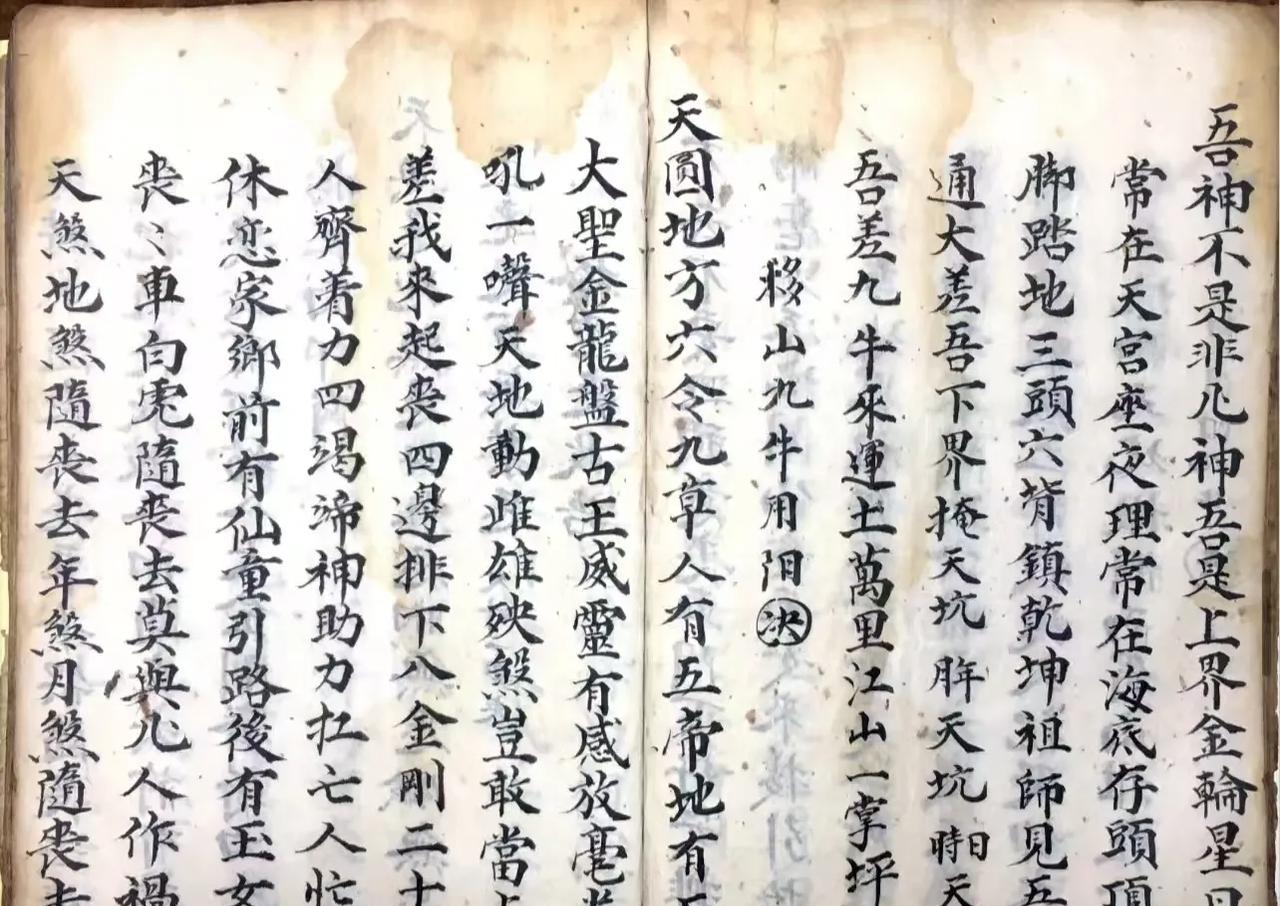 吾神不是非凡神吾是上界金輪星
常在天宮座夜理常在海底存頭頂
脚踏地三頭六背鎮乾坤祖師見
通大差吾下界掩天坑 年月天坑 時日天
吾差九牛來運土萬里江山一掌坪
移山九牛用阳决
天圆地方六令九草人有五帝地有
大聖金龍盤古王威靈有感放毫
吼一聲天地動雌雄殃煞豈敢當
差我來起丧四邊排下八金剛二十
人齊着力四渴諦神助力扛亡人忙
休恋家鄉前有仙童引路後有玉女
丧丶車白虎隨丧去莫與凡人作禍
天煞地煞隨丧去年煞月煞隨丧去